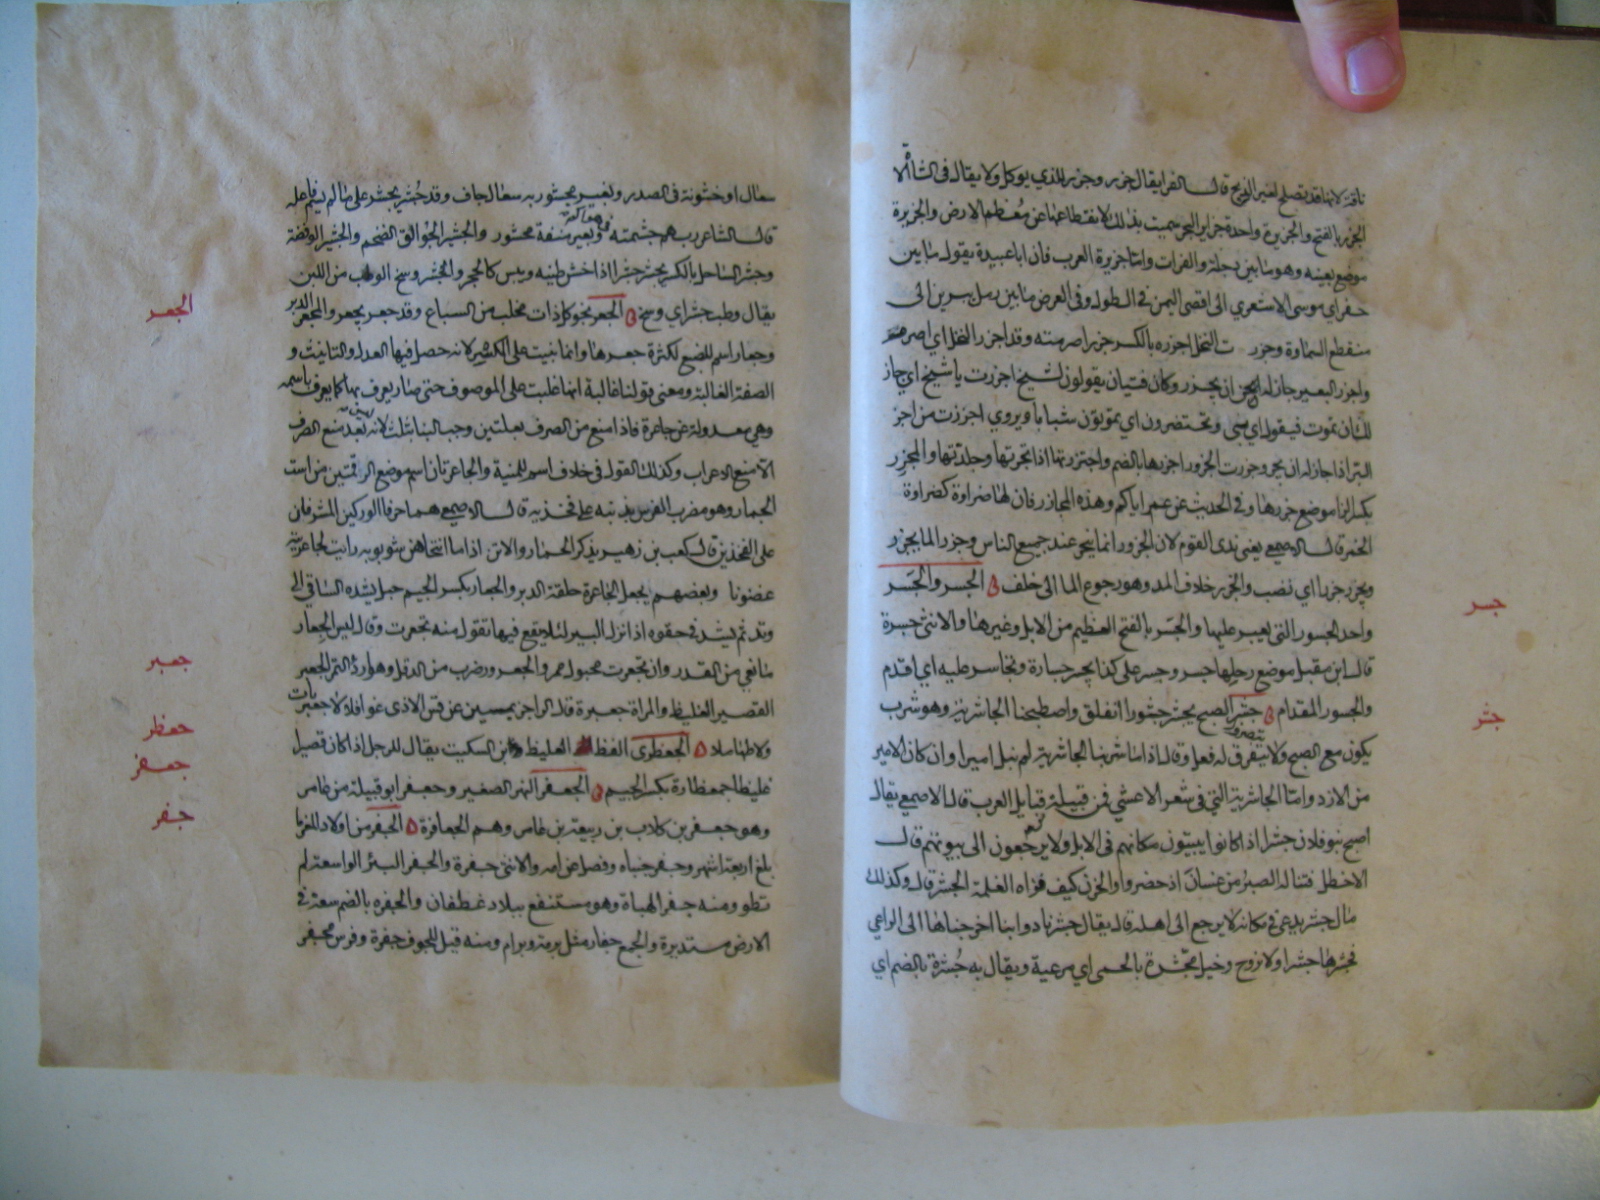 ناقة لانها قد تصلح لغير الذبح قال الفرا يقال جزر وجزر للذي يوكل ولا يقال في الشاة الا
الجزر بالفتح والجزيرة واحدة جزاير البحر سميت بذلك لانقطاعها عن مُعظم الارض والجزيرة
موضع بعينه وهو ما بين دجلة والفرات واما جزيرة العرب فان ابا عبيدة يقول ما بين
حفر ابي موسى الاشعري الى اقصى اليمن في الطول وفي العرض ما بين رمل يبرين الى
منقطع السماوة وجزرت النخل اجزره بالكسر جزرا صرمته وقد اجزر النخل اي اصرم
واجزر البعير حان له ان يجزر وكان فتيان يقولون لشيخ اجزرت يا شيخ اي حان
لك ان تموت فيقول اي بني وتختضرون اي تموتون شبابا ويروي اجززت من اجز
البر اذا حان له ان يجز وجزرت الجزور اجزرها بالضم واجتزرتها اذا نحرتها وجلدتها والمجزر
بكسر الزا موضع جزرها وفي الحديث عن عمر اياكم وهذه المجازر فان لها ضراوة كضراوة
الخمر قال الاصمعي يعني ندى القوم لان الجزور انما ينحر عند جميع الناس وجزر الما يجزر
ويجزر جزرا اي نضب والجزر خلاف المد وهو رجوع الما الى خلف الجسر والجَسر
واحد الجسور التي يعبر عليها والجَسْر بالفتح العظيم من الابل وغيرها والانثى جسرة
قال ابن مقبل موضع رحلها جسر وجسر على كذا يجسر جسارة وتجاسر عليه اي اقدم
والجسور المقدام جشر الصبح يجشر جشورا انفلق واصطبحنا الجاشرية وهو شرب
يكون مع الصبح ولا يتصرف له فعل وقال اذا ما شربنا الجاشرية لم نبل اميرا وان كان الامير
من الازد واما الجاشرية التي في شعر الاعشى فمن قبيلة قبايل العرب قال الاصمعي يقال
اصبح بنو فلان جشرا اذا كانوا يبيتون مكانهم في الابل ولا يرجعون الى بيوتهم قال
الاخطل فتساله الصبر من غسان اذ حضروا والحزن كيف قراه الغلمة الجشر قال وكذلك
مال جشر يرعى في مكانه لا يرجع الى اهله قال يقال جشرنا دوابنا اخرجناها الى الراعي
نجشرها جشرا ولا نروح وخيل مجشرة بالحمى اي مرعية ويقال به جُشرة بالضم اي
جسر
جشر
سعال او خشونة في الصدر وبعير مجشور به سعال جاف وقد جُشر يجشر على ما لم يسم فاعله
قال الشاعر رب هم جشمته في هواكم وبعير منفه محشور والجشير الجوالق الضخم والجشير الوفضة
وجشر الساحل بالكسر يجشر جشرا اذا خشن طينه ويبس كالحجر والجشر وسخ الوطب من اللبن
يقال وطب جشر اي وسخ الجعر نجو كل ذات مخلب من السباع وقد جعر يجعر والمجعر الدبر
وجعار اسم للضبع لكثرة جعرها وانما بنيت على الكسر لانه حصل فيها العدل والتانيث و
الصفة الغالبة ومعنى قولنا غالبة انها غلبت على الموصوف حتى صار يعرف بها كما يعرف باسمه
وهي معدولة عن جاعرة فاذا منع من الصرف بعلتين وجب البنا بثلث لانه ليس بعد منع الصرف
الا منع الاعراب وكذلك القول في خلاف اسم للمنية والجاعرتان اسم موضع الرقمتين من است
الحمار وهو مضرب الفرس بذنبه على فخذيه قال الاصمعي هما حرفا الوركين المشرفان
على الفخذين قال كعب بن زهير يذكر الحمار والاتن اذا ما انتحاهن شوبوبه رايت لجاعرتيه
غضونا وبعضهم يجعل الجاعرة حلقة الدبر والجعار بكسر الجيم حبل يشده الساقي الى
وتد ثم يشد في حقوه اذا نزل البير لئلا يقع فيها تقول منه تجعرت وقال ليس الجعار
مانعي من القدر وان تجعرت محبول ممر والجعرور ضرب من الدقل وهو اردا التمر الجعبر
القصير الغليظ والمراة جعبرة قال الراجز يمسين عن قس الاذى غوافلا لا جعبريات
ولا طهاملا الجعظرى الفظ الغليظ ابن السكيت يقال للرجل اذا كان قصيرا
غليظا جعظارة بكسر الجيم الجعفر النهر الصغير وجعفر ابو قبيلة من عامر
وهو جعفر بن كلاب بن ربيعة بن عامر وهم الجعافرة الجفر من اولاد المعز ما
بلغ اربعة اشهر وجفر جنباه وفصل عن امه والانثى جفرة والجفر البئر الواسعة لم
تطو ومنه جفر الهباة وهو مستنقع ببلاد غطفان والجفره بالضم سعة في
الارض مستديرة والجمع جفار مثل برمة وبرام ومنه قيل للجوف جفرة وفرس مجفر
الجعر
جعبر
جعظر
جعفر
جفر